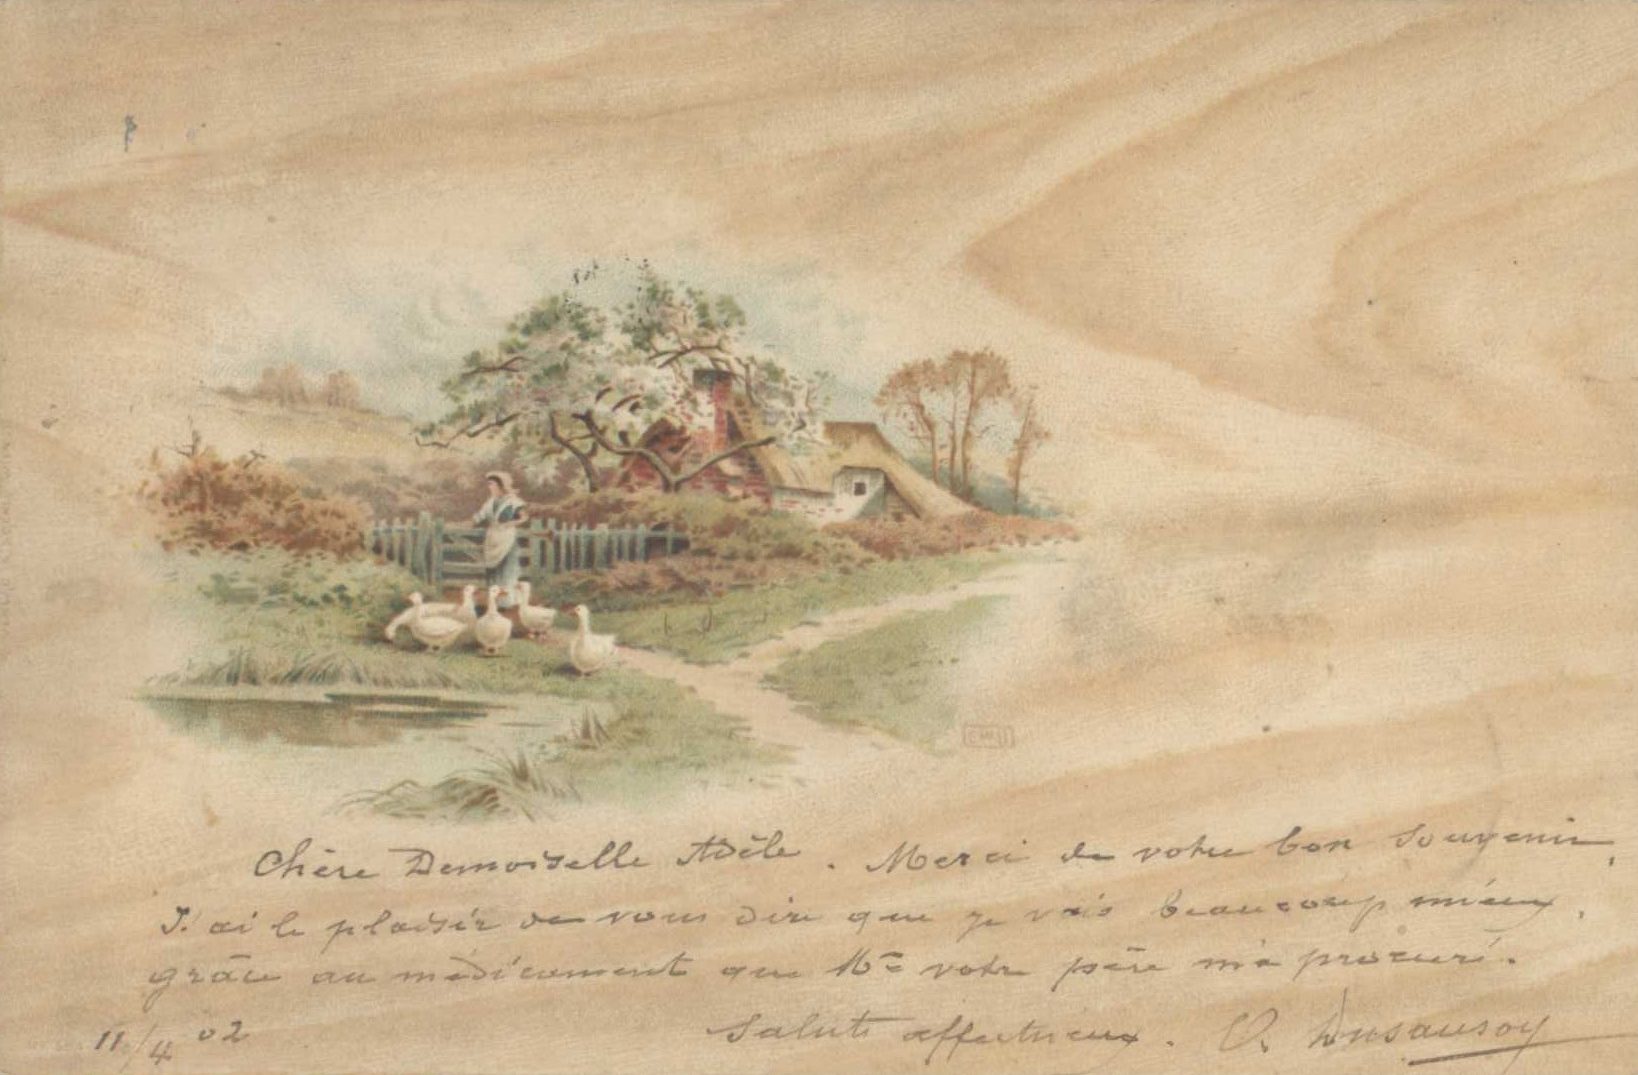 Chère Demoiselle Adèle. Merci de votre bon souvenir,
J'ai le plaisir de vous dire que je vais beaucoup mieux,
grâce au médicament que Mr votre père m'a procuré.
Saluts affectueux. Dusausoy
11/4 02